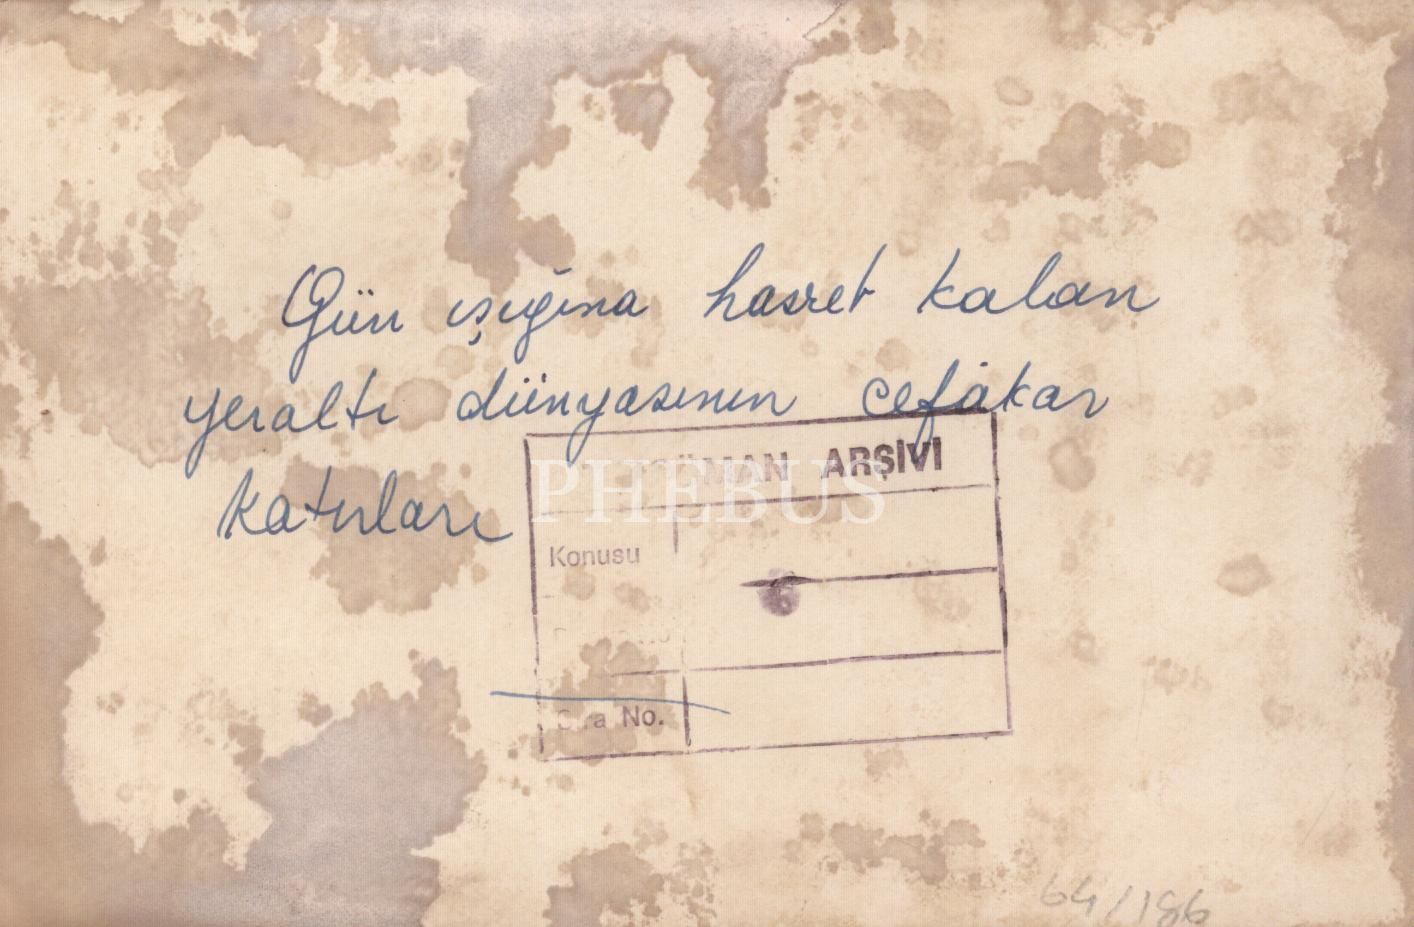 Gün ışığına hasret kalan
yeraltı dünyasının cefakar
katırları
ARŞİVİ
PHEBUS
Konusu
Sıra No.
64/186